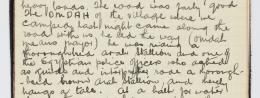 heavy loads. The road was fairly good
The OMDAH of the village where we
camped last night came along the
road with us, he led the way (omdah
means mayor) he was riding a
thoroughbred arab stallion and one of
the Egyptian police officers who acted
as guides and interpreter rode a thorough-
bred brown arab stallion and had
hung of tales. At a halt for water